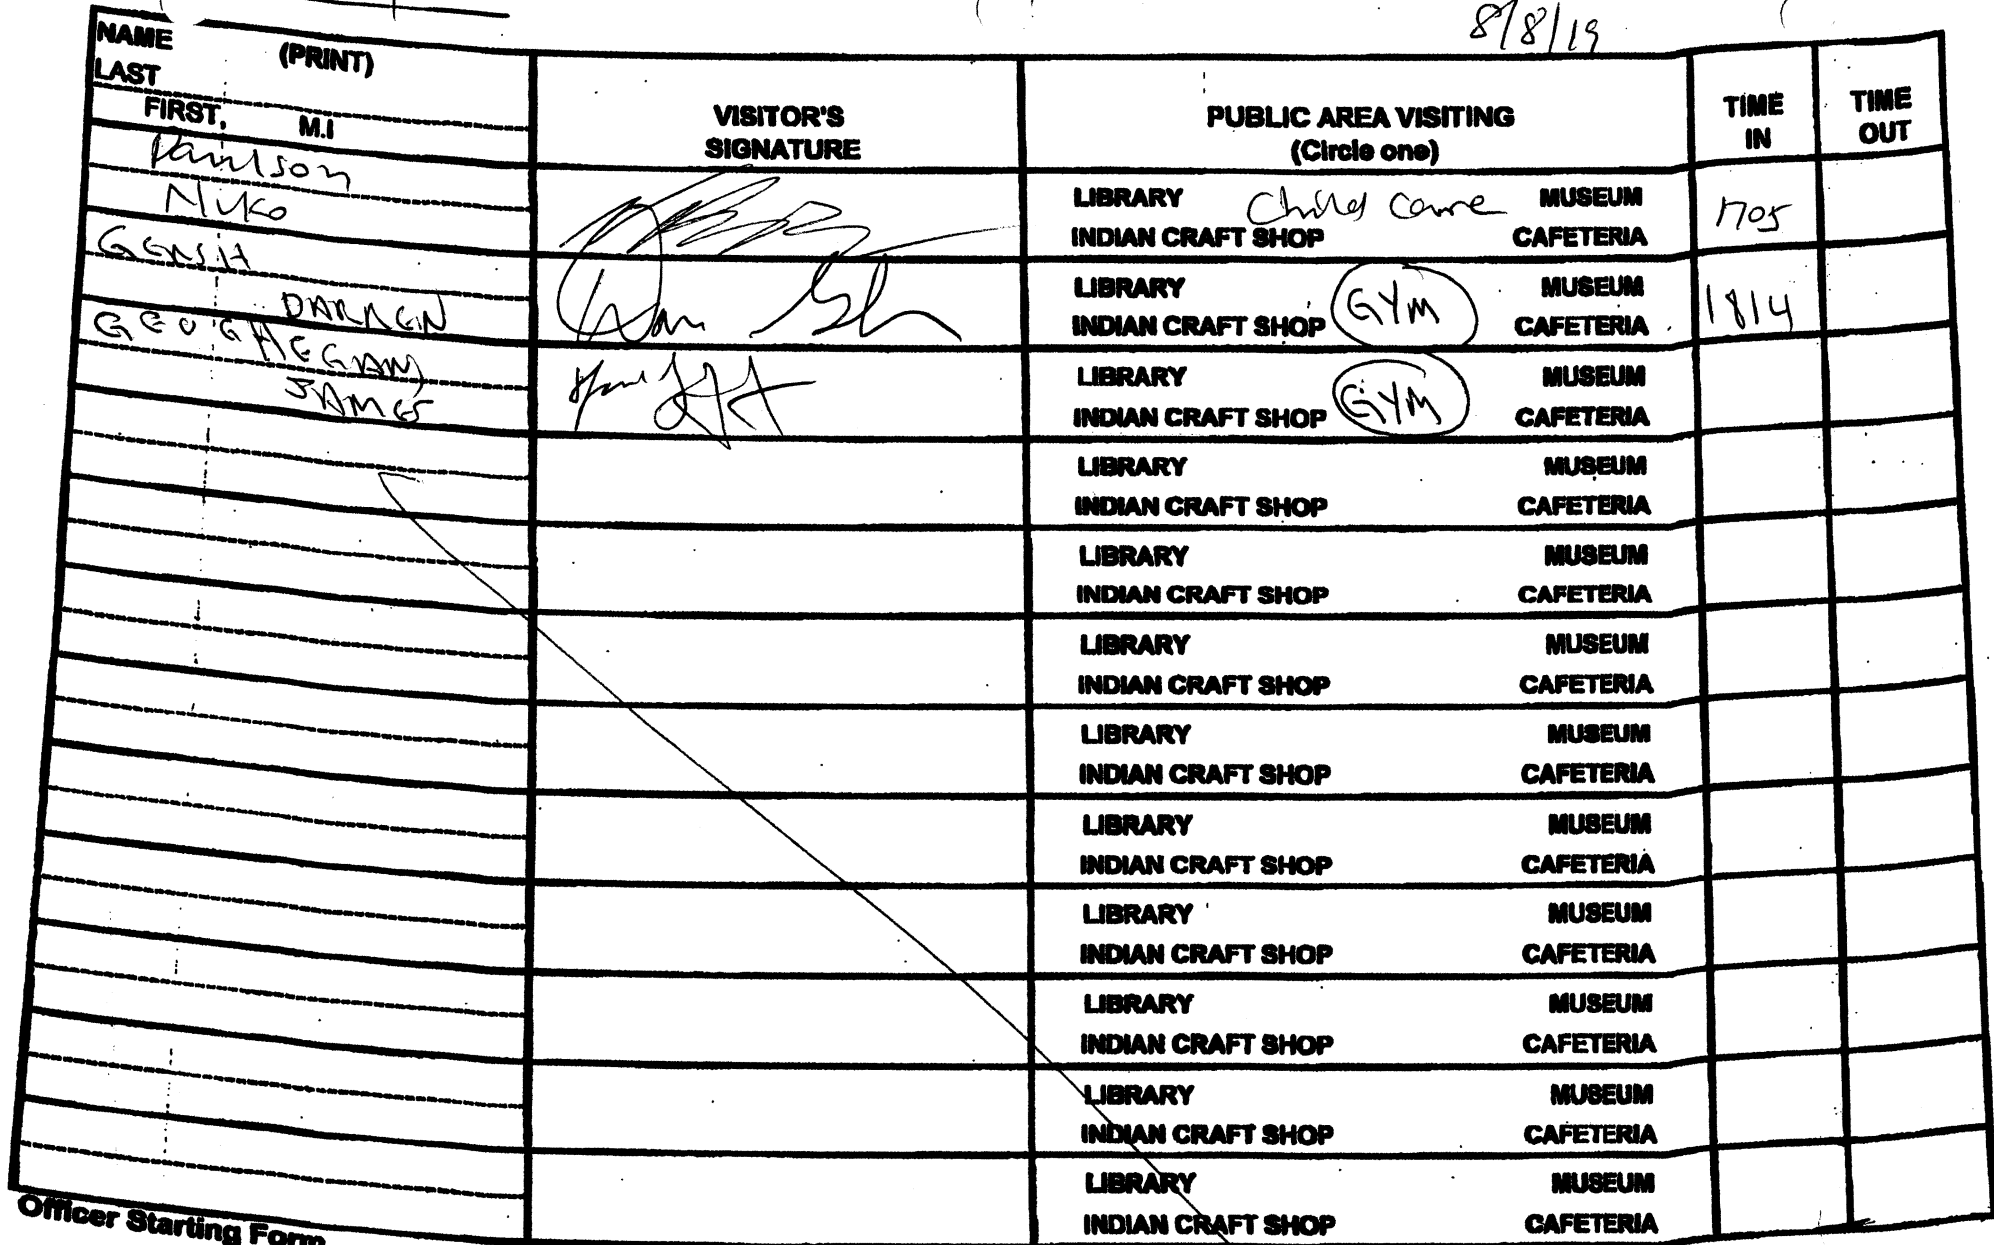 8/8/19
NAME (PRINT)
LAST
FIRST, M.I
VISITOR'S
SIGNATURE
PUBLIC AREA VISITING
(Circle one)
TIME
IN
TIME
OUT
Paulson
Niko
LIBRARY Child Care MUSEUM
INDIAN CRAFT SHOP CAFETERIA
1705
GERSH
DARREN
LIBRARY GYM MUSEUM
INDIAN CRAFT SHOP CAFETERIA
1814
GEOGHEGAN,
JAMES
LIBRARY GYM MUSEUM
INDIAN CRAFT SHOP CAFETERIA
LIBRARY MUSEUM
INDIAN CRAFT SHOP CAFETERIA
LIBRARY MUSEUM
INDIAN CRAFT SHOP CAFETERIA
LIBRARY MUSEUM
INDIAN CRAFT SHOP CAFETERIA
LIBRARY MUSEUM
INDIAN CRAFT SHOP CAFETERIA
LIBRARY MUSEUM
INDIAN CRAFT SHOP CAFETERIA
LIBRARY MUSEUM
INDIAN CRAFT SHOP CAFETERIA
LIBRARY MUSEUM
INDIAN CRAFT SHOP CAFETERIA
LIBRARY MUSEUM
INDIAN CRAFT SHOP CAFETERIA
LIBRARY MUSEUM
INDIAN CRAFT SHOP CAFETERIA
Officer Starting Form